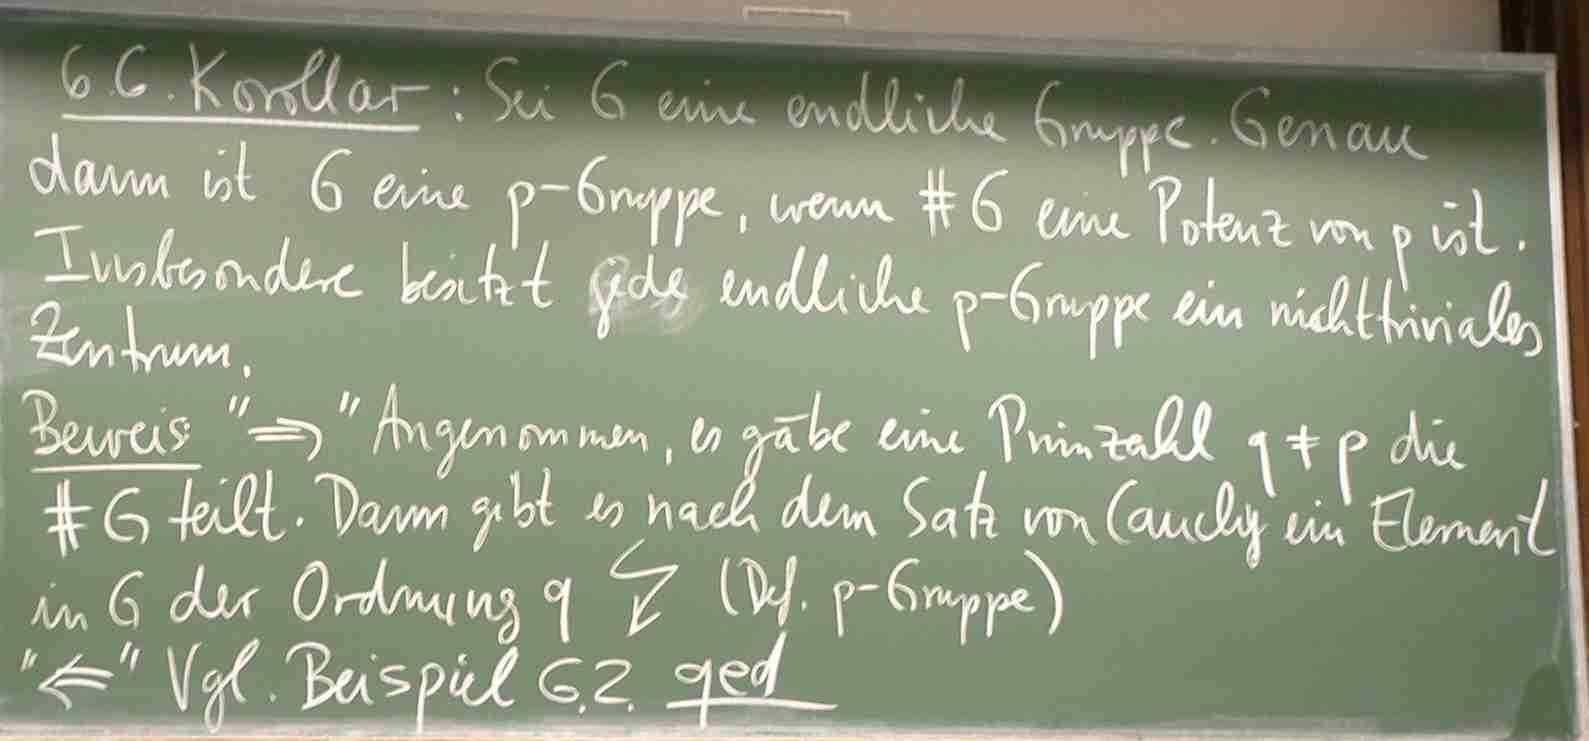 6.6. Korollar: Sei G eine endliche Gruppe. Genau
dann ist G eine p-Gruppe, wenn #G eine Potenz von p ist.
Insbesondere besitzt jede endliche p-Gruppe ein nichttriviales
Zentrum.
Beweis "⇒" Angenommen, es gäbe eine Primzahl q ≠ p die
#G teilt. Dann gibt es nach dem Satz von Cauchy ein Element
in G der Ordnung q ↯ (Def. p-Gruppe)
"⇐" Vgl. Beispiel 6.2. qed